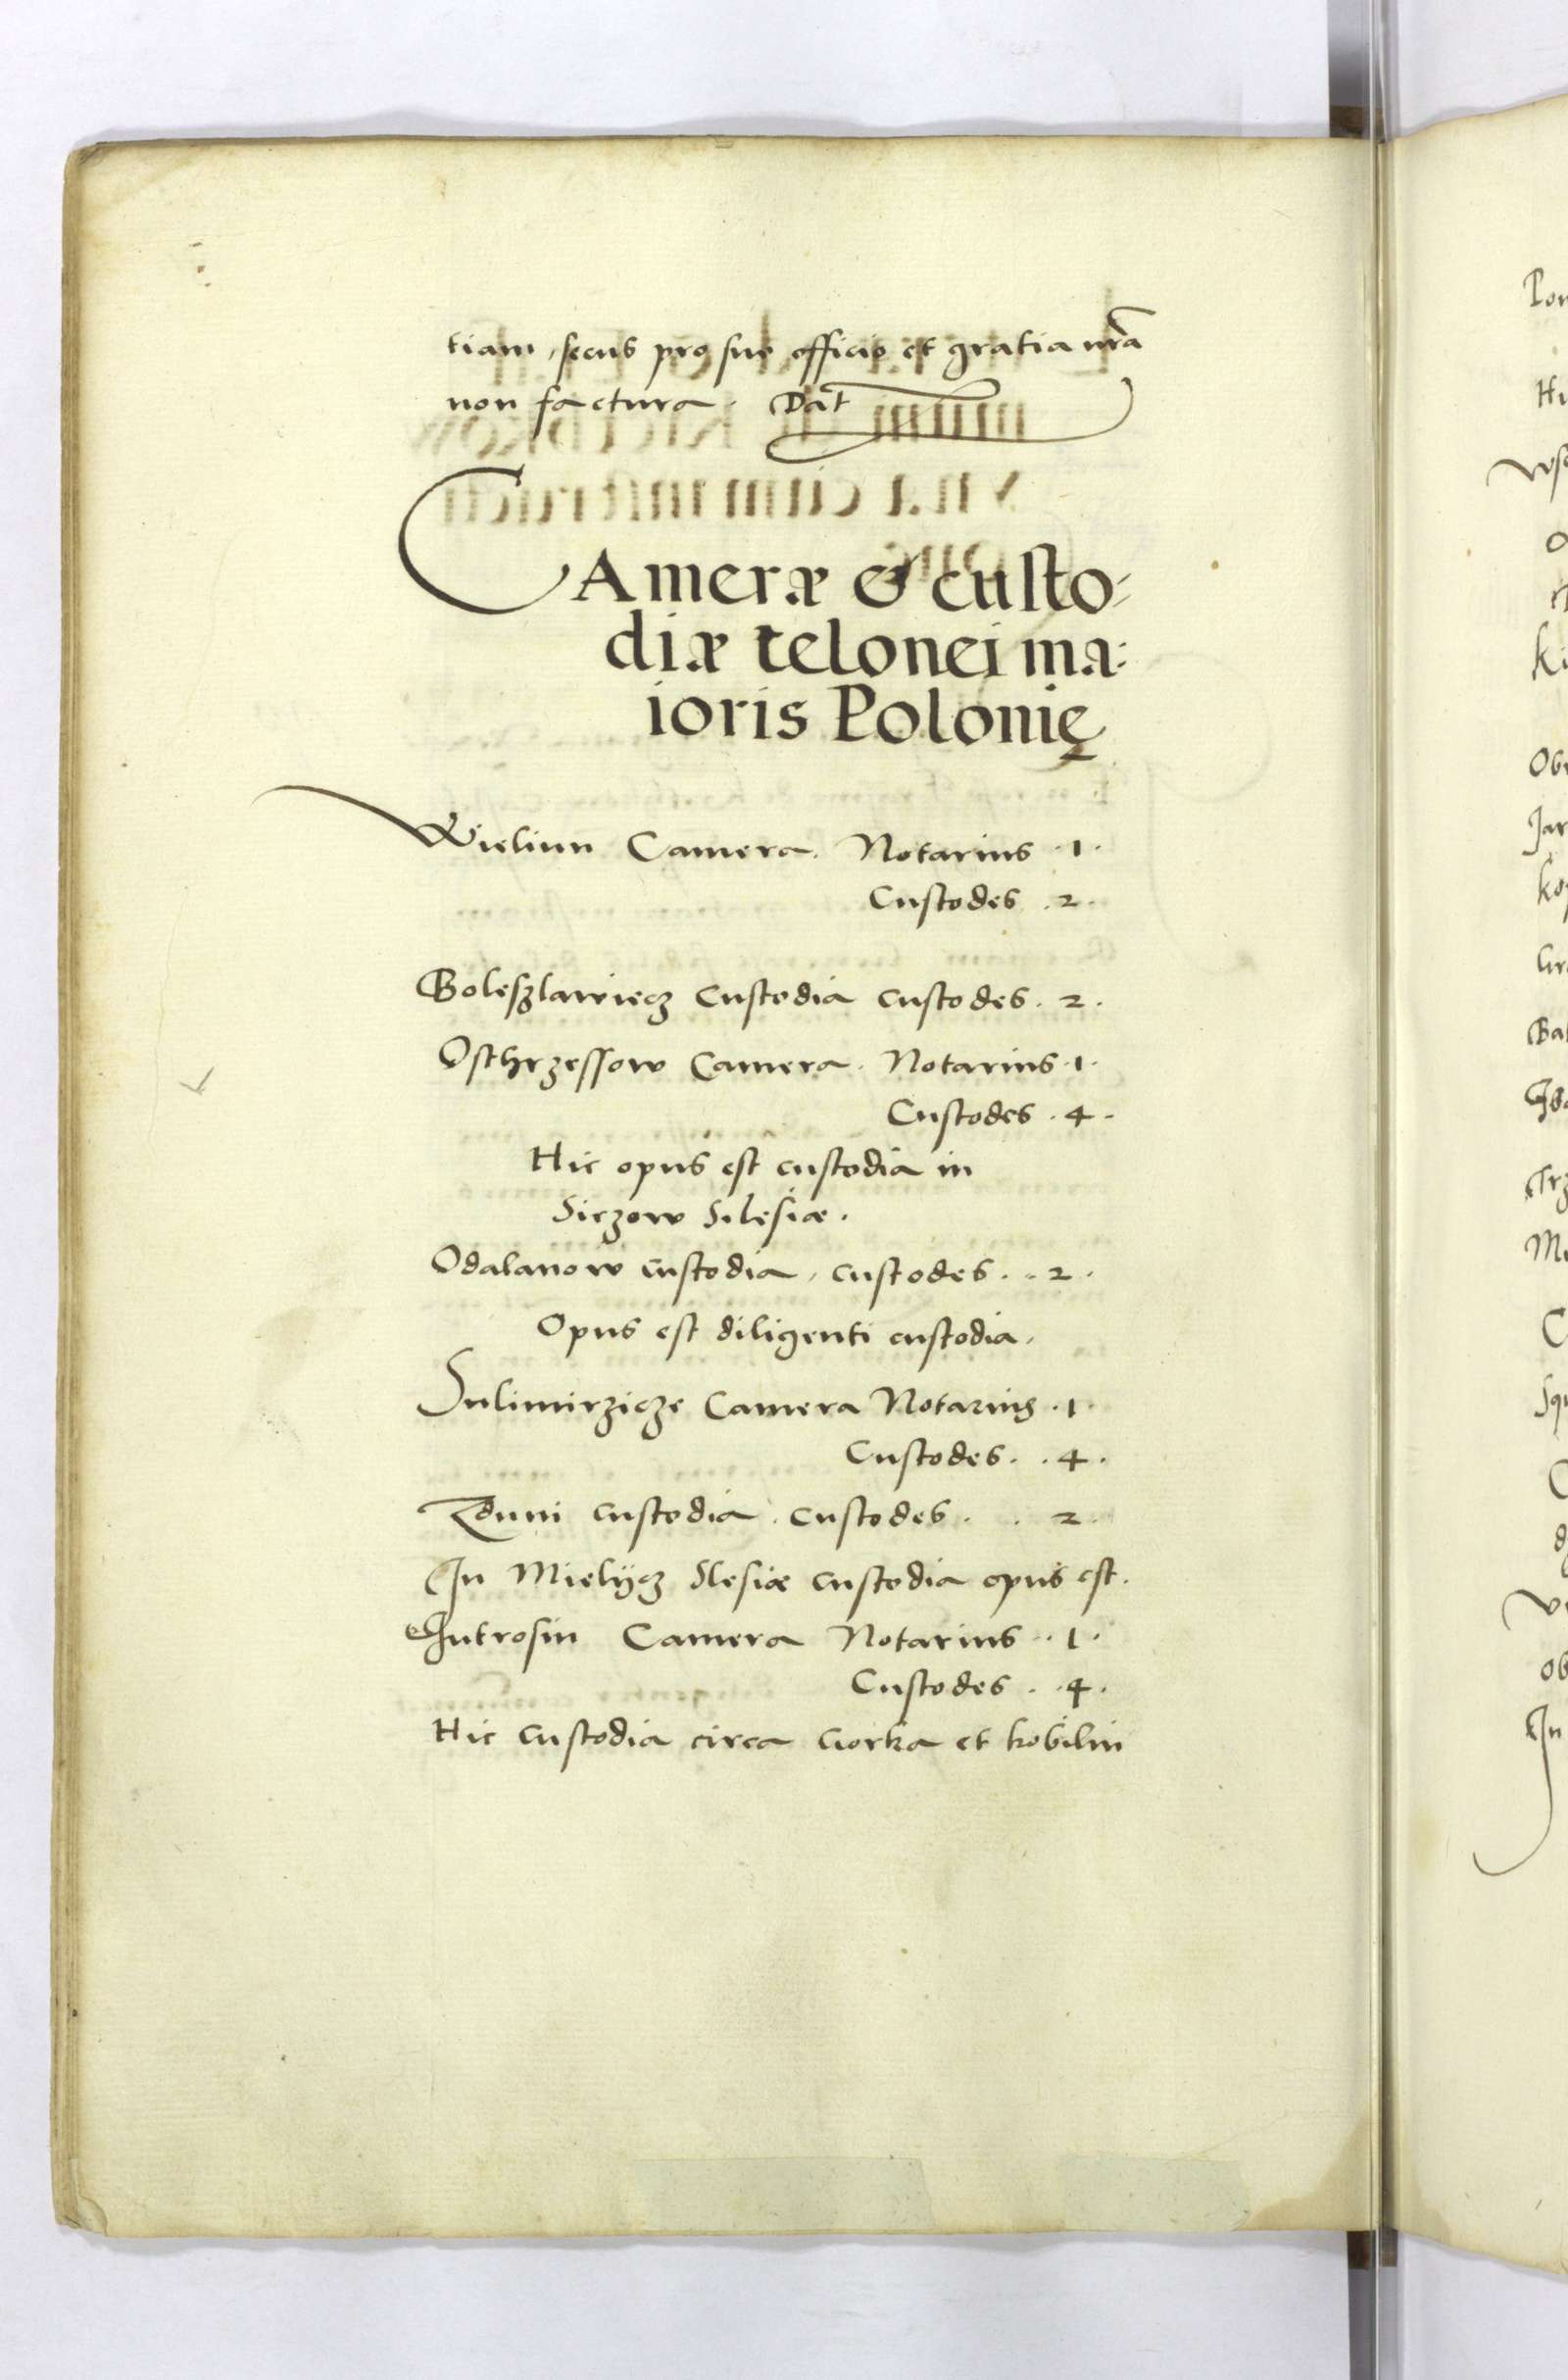 tiam, secus pro suo officio et gratia nrã
non factura. Dat
CAmeræ & custo-
diæ telonei ma:
ioris Polonię
Wieliun Camera. Notarius .1.
Custodes .2.
Boleszlawiecz custodia custodes. 2.
Osthrzessow Camera. Notarius .1.
Custodes .4.
Hic opus est custodia in
Siczow Silesiæ.
Odalanow custodia, custodes. .2.
Opus est diligenti custodia.
Sulimirzicze Camera Notarius .1.
Custodes. .4.
Zduni custodia. custodes. . 2.
In Mielijcz Slesiæ custodia opus est.
Introsin Camera Notarius ..1.
Custodes. .4.
Hic custodia circa Gorka et kobilin